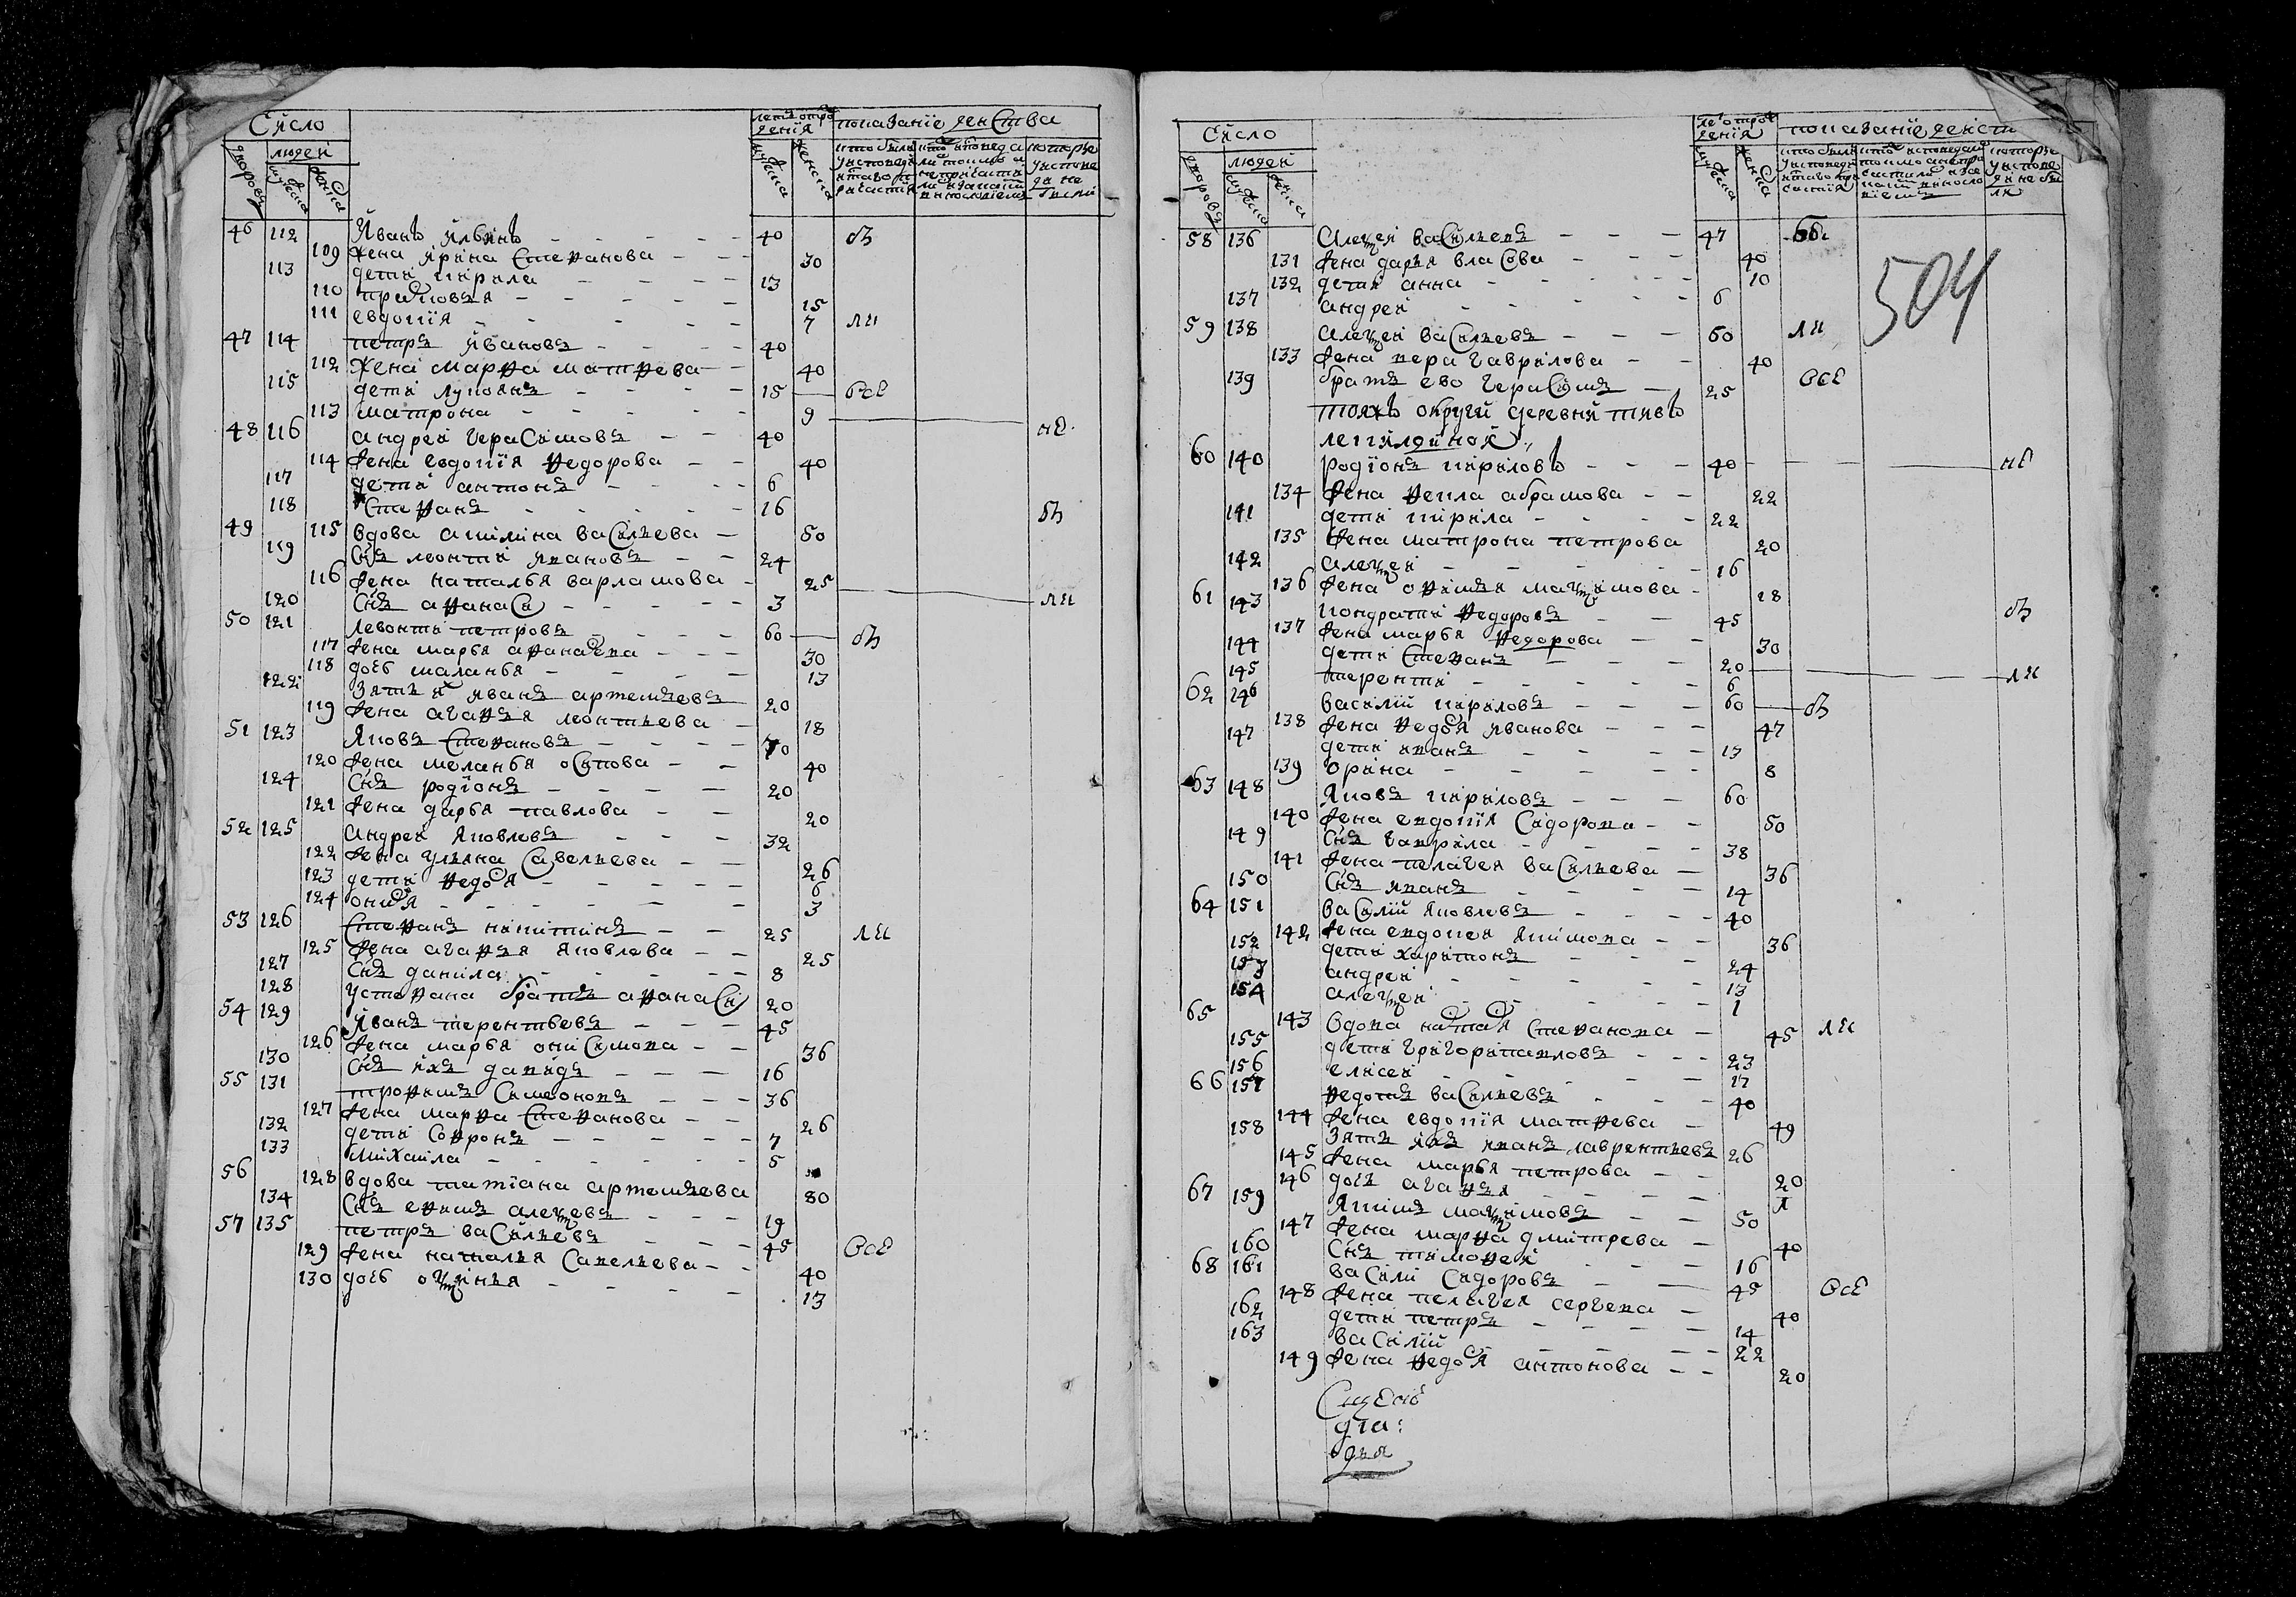 Число
людей
46 112 Иванъ Ильинъ 40 бы
109 Жена Ирина Степанова 30
113 дети кирила 13
110 прасковья 15
111 евдокія 7 ли
47 114 петръ Ивановъ 40
112 Жена марѳа матѳеева 40
115 дети лукоянъ 15 все
113 матрона 9
48 116 андреи герасимовъ 40 не
114 Жена евдокія ѳедорова 40
117 дети антонъ 6
118 Стеѳанъ 16 бы
49 115 вдова акилина василева 50
119 Снъ леонти ивановъ 24
116 Жена наталья варламова 25
120 Снъ аѳанаси 3 ли
50 121 левонти петровъ 60 бы
117 Жена марья аѳанасева 30
118 дочь маланья 13
122 Зять их иванъ артемьевъ 20
119 Жена агаѳья леонтьева 18
51 123 Яковъ Стеѳановъ 70
120 Жена меланья осипова 40
124 Снъ родіонъ 20
121 Жена дарья павлова 20
52 125 андреи Яковлевъ 32
122 Жена ульяна Савельева 26
123 дети ѳедосья 6
124 онисья 3
53 126 Стеѳанъ никитинъ 25 ли
125 Жена агаѳья Яковлева 25
127 Снъ данила 8
128 устеѳана братъ аѳанаси 20
54 129 Иванъ терентьевъ 45
126 Жена марья онисимова 36
130 Снъ ихъ давидъ 16
55 131 троѳимъ Симеоновъ 36
127 Жена марѳа Стеѳанова 26
132 дети Соѳронъ 7
133 михаила 5
56 128 вдова татіана артемьева 80
134 Снъ еѳимъ алеѯевъ 19
57 135 петръ васильевъ 45 все
129 Жена наталья Савельева 40
130 дочь оѯинья 13
Число
людей
58 136 Алеѯеи васильевъ 47 бы
504
131 Жена дарья власова 40
132 дети анна 10
137 андреи 6
59 138 Алеѯеи васильевъ 60 ли
133 Жена вера гаврилова 40
139 братъ ево герасимъ 25 все
тояжъ округи деревни тивъ
лепиляиной
60 140 родіонъ кириловъ 40 не
134 Жена ѳекла абрамова 22
141 дети кирила 22
135 Жена матрона петрова 20
142 алеѯеи 16
136 Жена оѳимья маѯимова 18
61 143 кондрати ѳедоровъ 45 бы
137 Жена марья ѳедорова 30
144 дети Стеѳанъ 20
145 теренти 6 ли
62 146 василии кириловъ 60 бы
138 Жена ѳедосья иванова 47
147 дети иванъ 17
139 орина 8
63 148 Яковъ кириловъ 60
140 Жена евдокія Сидорова 50
149 Снъ гаврила 38
141 Жена пелагея васильева 36
150 Снъ иванъ 14
64 151 василии Яковлевъ 40
142 Жена евдокея Якимова 36
152 дети харитонъ 24
153 андреи 13
154 алеѯеи 1
65 143 вдова настасья Стеѳанова 45 ли
155 дети григори павловъ 23
156 елисеи 17
66 157 ѳедотъ васильевъ 40
144 Жена евдокія матѳеева 49
158 Зять ихъ иванъ лаврентьевъ 26
145 Жена марья петрова 20
146 дочь агаѳья
67 159 Якимъ маѯимовъ 50
147 Жена марѳа дмитрева 40
160 Снъ тимоѳеи 16
68 161 васили Сидоровъ 45 все
148 Жена пелагея сергева 40
162 дети петръ 14
163 василии 22
149 Жена ѳедосья антонова 20